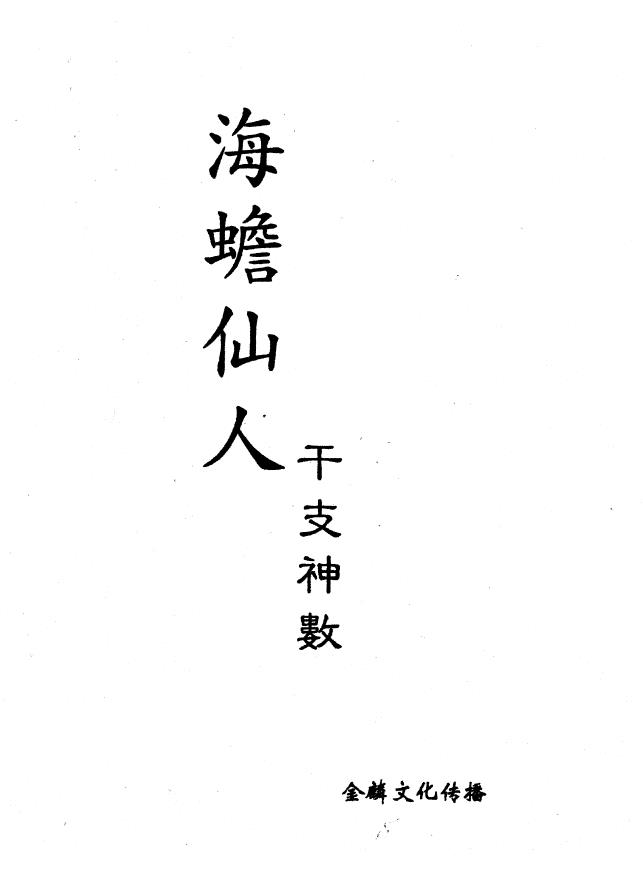 海蟾仙人
干支神數
金麟文化传播